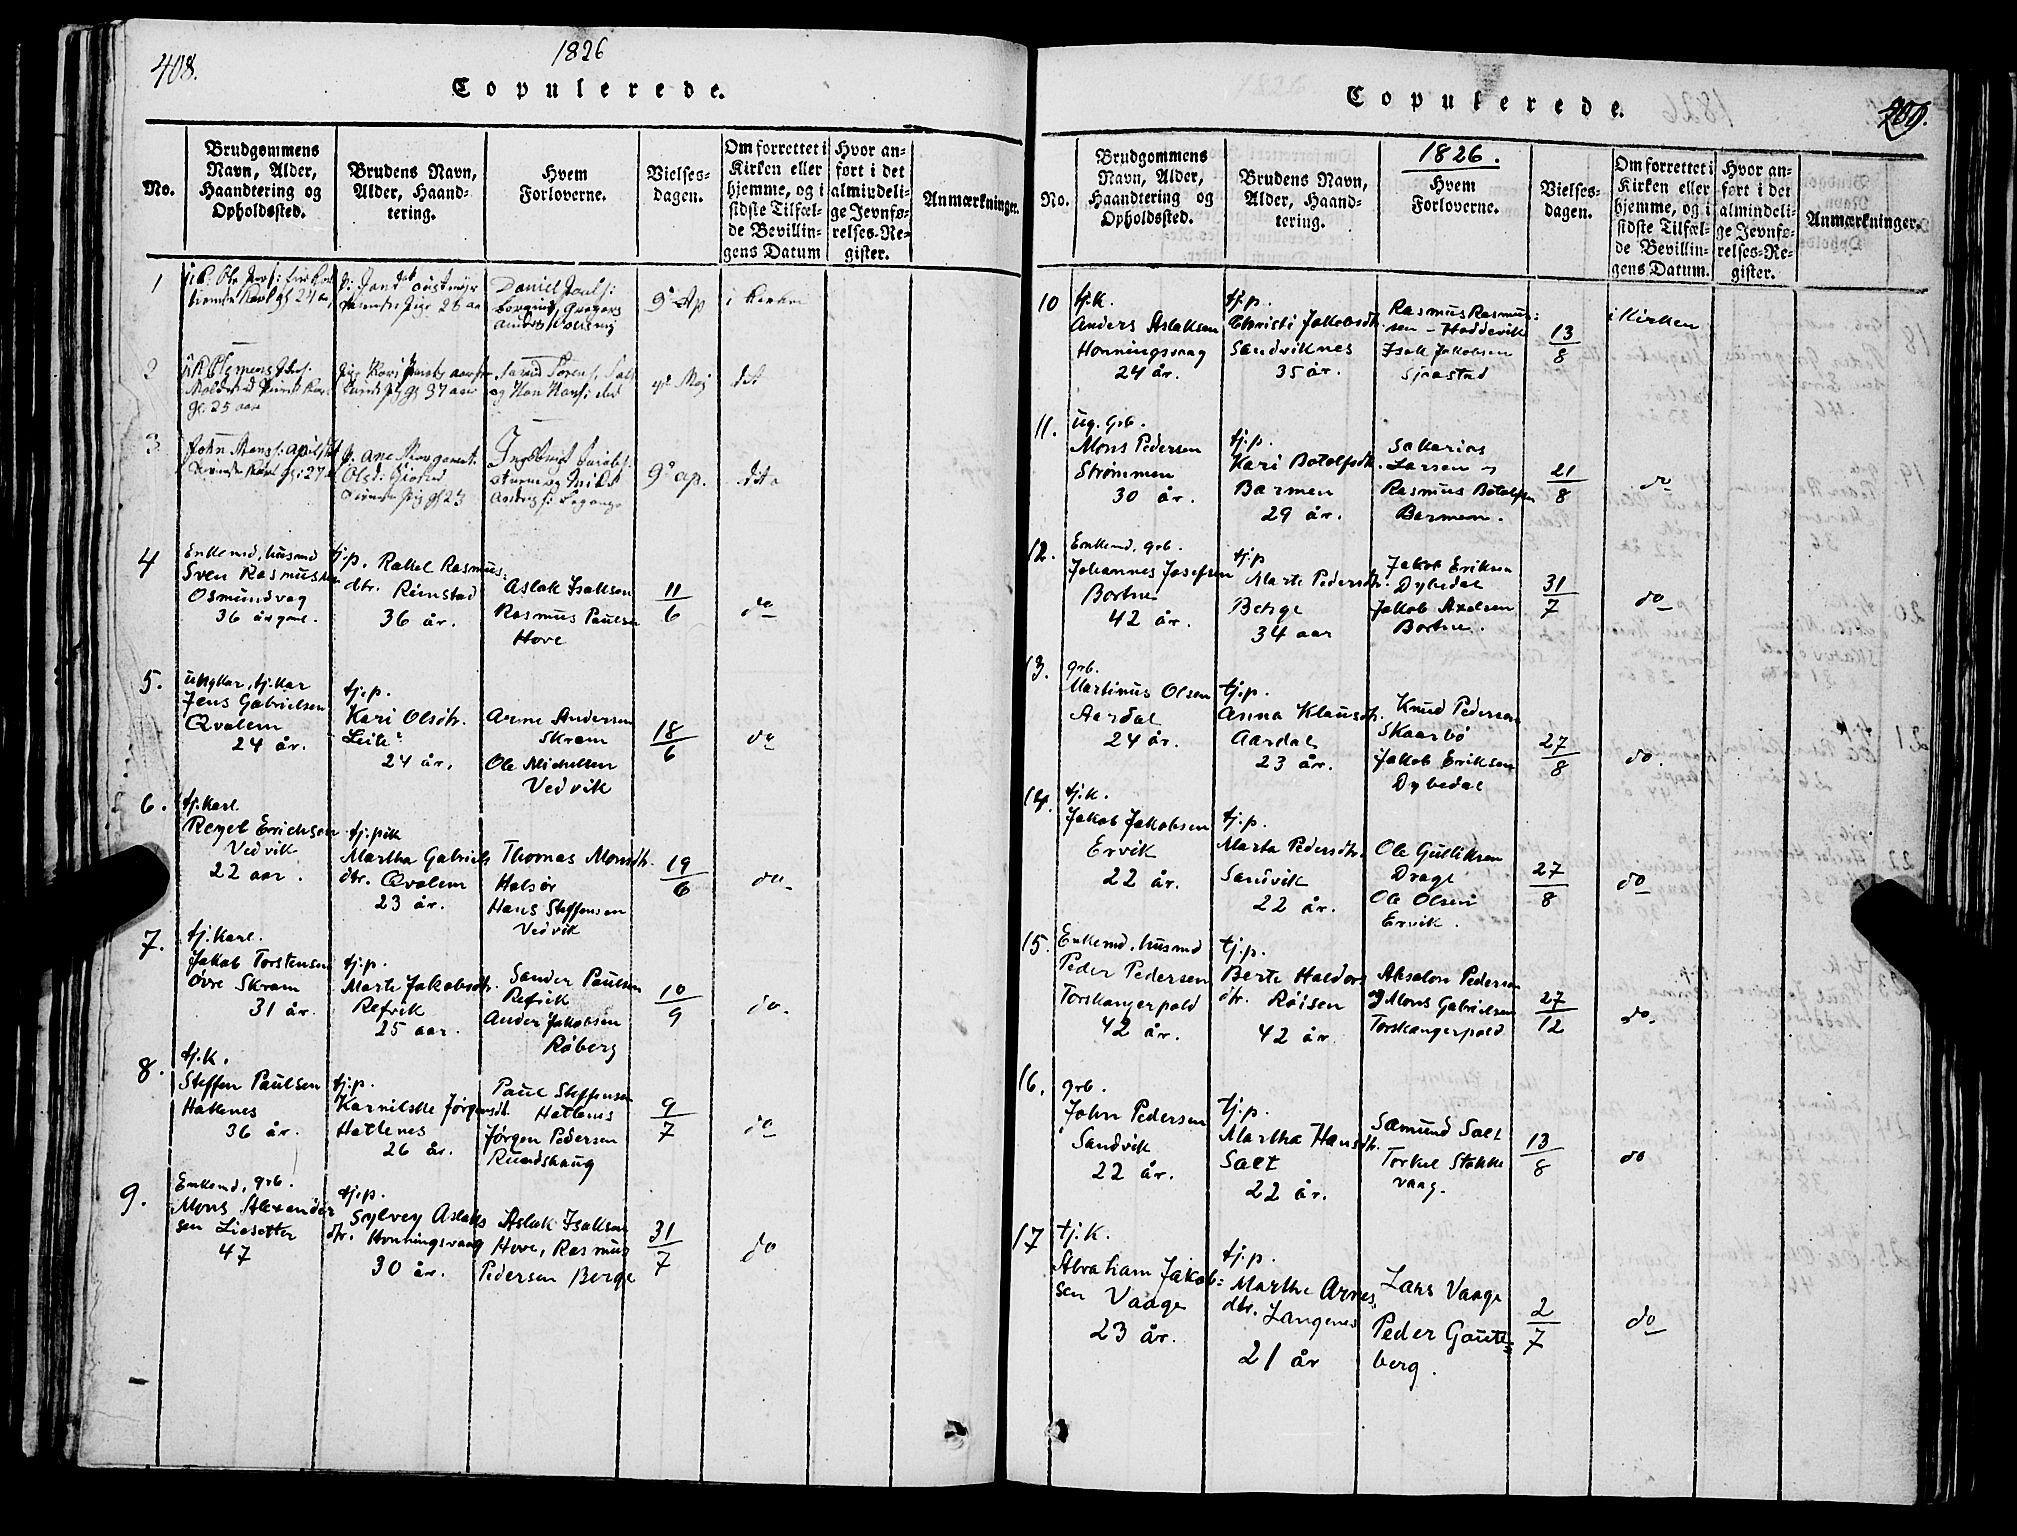 408.
1826
Copulerede.
No.
Brudgommens
Navn, Alder,
Haandtering og
Opholdssted.
Brudens Navn,
Alder, Haand-
tering.
Hvem
Forloverne.
Vielses-
dagen.
Om forrettet i
Kirken eller
hjemme, og i
sidste Tilfæl-
de Bevillin-
gens Datum
Hvor an-
ført i det
almindeli-
ge Jevnfø-
relses-Re-
gister.
Anmærkninger.
1
Daniel
9de Ap
i Kirken
2
gl. 25 aar
37 aar
dito
3
John
p. Ane Margaret
9de ap.
dito
4
Enkemd, husmd
Sven Rasmussen
Osmundvag
36 år gml.
tj.p. Rakel Rasmus-
dtr. Rimstad
36 år.
Aslak Isaksen
Rasmus Paulsen
Hove
11/6
do
5.
ungkar, tj.kar
Jens Gabrielsen
Qvalem
24 år.
tj.p.
Kari Olsdtr.
Leite
24 år.
Arne Andersen
Skram
Ole Michelsen
Vedvik
18/6
do
6.
tj.karl
Reyel Errichsen
Vedvik
22 aar.
tj.pik
Martha Gabriels
dtr. Qvalem
23 år.
Thomas Monsdtr.
Halsør
Hans Steffensen
Vedvik
19/6
do
7.
tj.karl.
Jakob Torstensen
Øvre Skram
31 år.
tj.p.
Marte Jakobsdtr.
Refvik
25 aar.
Sander Paulsen
Refvik
Ander Jakobsen
Røberg
10/9
do.
8.
tj.k.
Steffen Paulsen
Hatlenes
36 år.
tj.p.
Karnilske Jørgensdt.
Hatlenes
26 år.
Paul Steffensen
Hatlenes
Jørgen Pedersen
Rundshaug
9/7
do
9.
Enkemd, grb.
Mons Alexander
sen Liesetter
47
tj.p.
Sylvey Aslaks
dtr. Honningsvaag
30 år.
Aslak Isaksen
Hove, Rasmus
Pedersen Berge
31/7
do
409.
Copulerede.
No.
Brudgommens
Navn, Alder,
Haandtering og
Opholdssted.
Brudens Navn,
Alder, Haand-
tering.
1826.
Hvem
Forloverne.
Vielses-
dagen.
Om forrettet i
Kirken eller
hjemme, og i
sidste Tilfæl-
de Bevillin-
gens Datum.
Hvor an-
ført i det
almindeli-
ge Jevnfø-
relses-Re-
gister.
Anmærkninger.
10
tj.k.
Anders Aslaksen
Honningsvaag
24 år.
tj.p.
Christi Jakobsdtr.
Sandviknes
35 år.
Rasmus Rasmus-
sen - Hoddevik
Isak Jakobsen
Sjaastad
13/8
i Kirken
11.
ug. grb.
Mons Pedersen
Strømmen
30 år.
tj.p.
Kari Botolfsdt.
Barmen
29 år.
Sakarias
Larsen
Rasmus Botolfsen
Barmen.
21/8
do
12.
Enkemd, grb.
Johannes Josefsen
Bortne
42 år.
tj.p
Marte Pedersdtr.
Berge
34 aar
Jakob Eriksen
Dybedal
Jakob Axelsen
Bortne.
31/7
do
13.
grb.
Martinus Olsen
Aardal
24 år.
tj.p.
Anna Klausdtr.
Aardal
23 år.
Knud Pedersen
Skaarbø
Jakob Eriksen
Dybedal
27/8
do.
14.
tj.k.
Jakob Jakobsen
Ervik
22 år.
tj.p.
Marta Pedersdtr.
Sandvik
22 år.
Ole Gulliksen
Drage
Ole Olsen
Ervik.
27/8
do
15.
Enkemd. husmd
Peder Pedersen
Torskangerpold
42 år.
tj.p.
Berte Haldors
dtr. Røisen
42 år.
Absalon Pedersen
og Mons Gabrielsen
Torskangerpold
27/12
do.
16.
grb.
John Pedersen
Sandvik
22 år.
tj.p.
Martha Hansdtr.
Salt
22 år.
Samund Salt
Torkel Stokke
vaag.
13/8
do
17
tj.k.
Abraham Jakob-
sen Vaage
23 år.
tj.p.
Marthe Arnes
dtr. Langenes
21 år
Lars Vaage
Peder Goute-
berg.
2/7
do